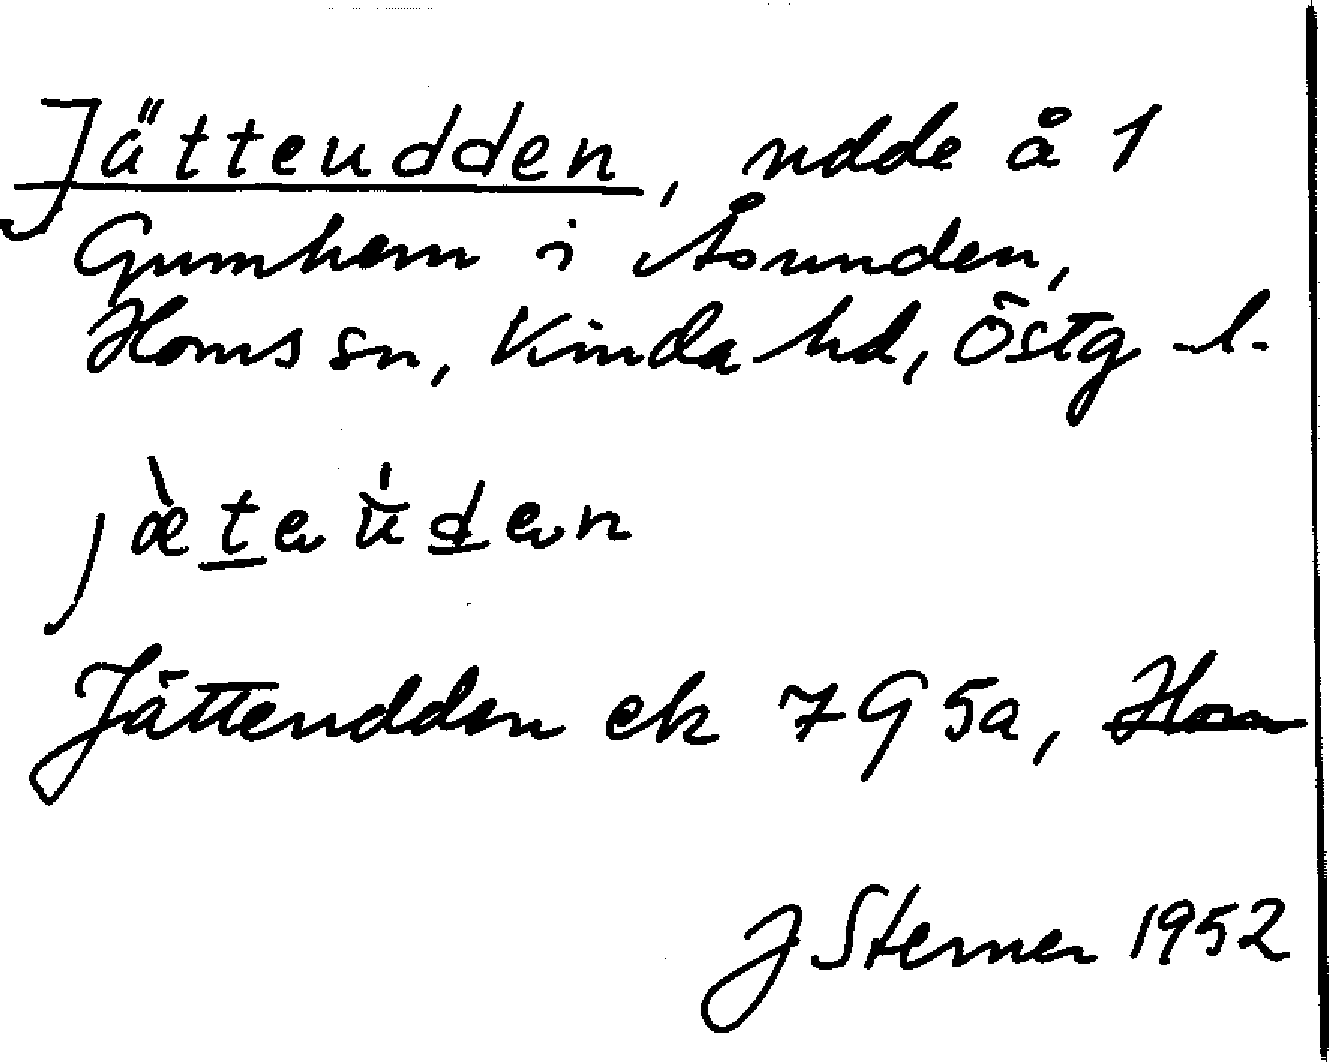 Jätteudden, udde å 1
Gumhem i Åsunden,
Horns sn, Kinda hd, Östg l.
jæ̀teu̇den
Jätteudden ek 7 G 5a, Horn
J Sterner 1952